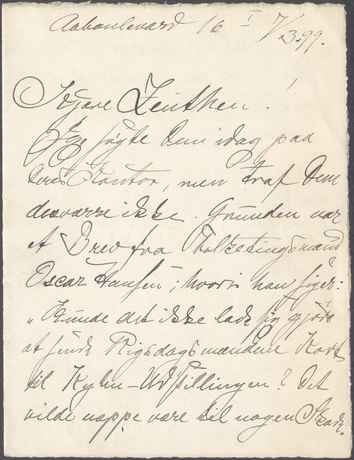 Aaboulevard 16 I 7/3.99.
Kjære Zeuthen!
Jeg søgte Dem idag paa
Deres Kontor, men traf Dem
desværre ikke. Grunden var
et Brev fra Folketingsmand
Oscar Hansen, hvori han siger:
„Kunde det ikke lade sig gjøre
at sende Rigsdagsmændene Kort
til Kylin-Udstillingen? Det
vilde næppe være til nogen Skade.